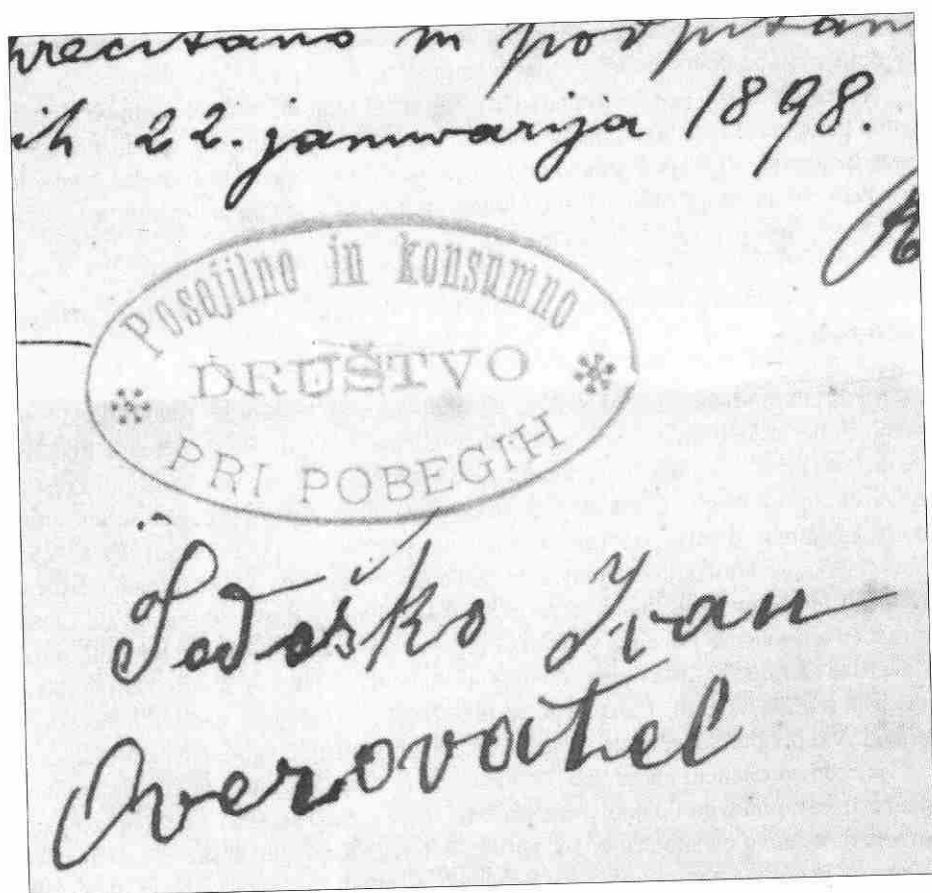 precitano in podpisan
ih 22. januvarija 1898.
Posojilno in konsumno
DRUŠTVO
PRI POBEGIH
Ivan
Overovatel